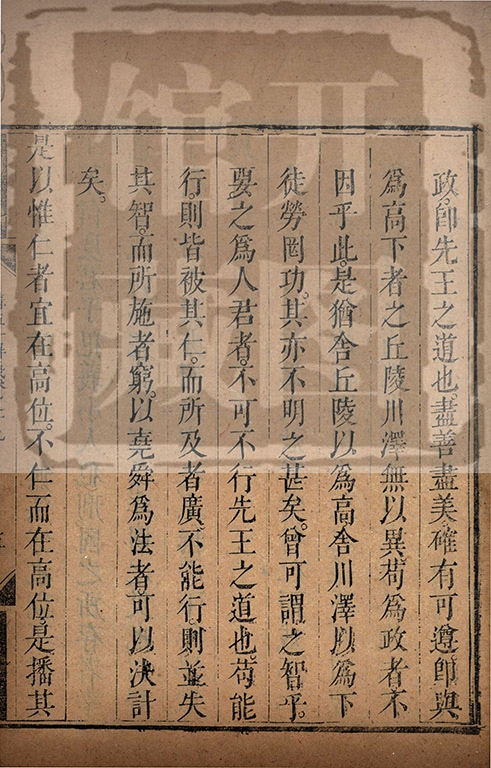 政。卽先王之道也。盡善盡美確有可遵卽與
爲高下者之丘陵川澤無以異苟爲政者不
因乎此。是猶舎丘陵以。爲高舎川澤以爲下
徒勞罔功。其亦不明之甚矣。曾可謂之智乎。
要之爲人君者。不可不行先王之道也苟能
行。則皆被其仁。而所及者廣。不能行。則並失
其智。而所施者窮。以堯舜爲法者。可以決計
矣。
是以惟仁者宜在高位。不仁而在高位。是播其